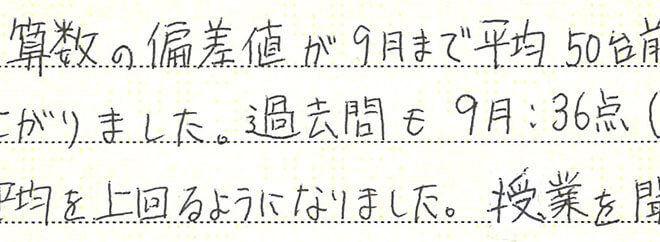 算数の偏差値が9月まで平均50台前
がりました。過去問も9月:36点(
平均を上回るようになりました。授業を聞